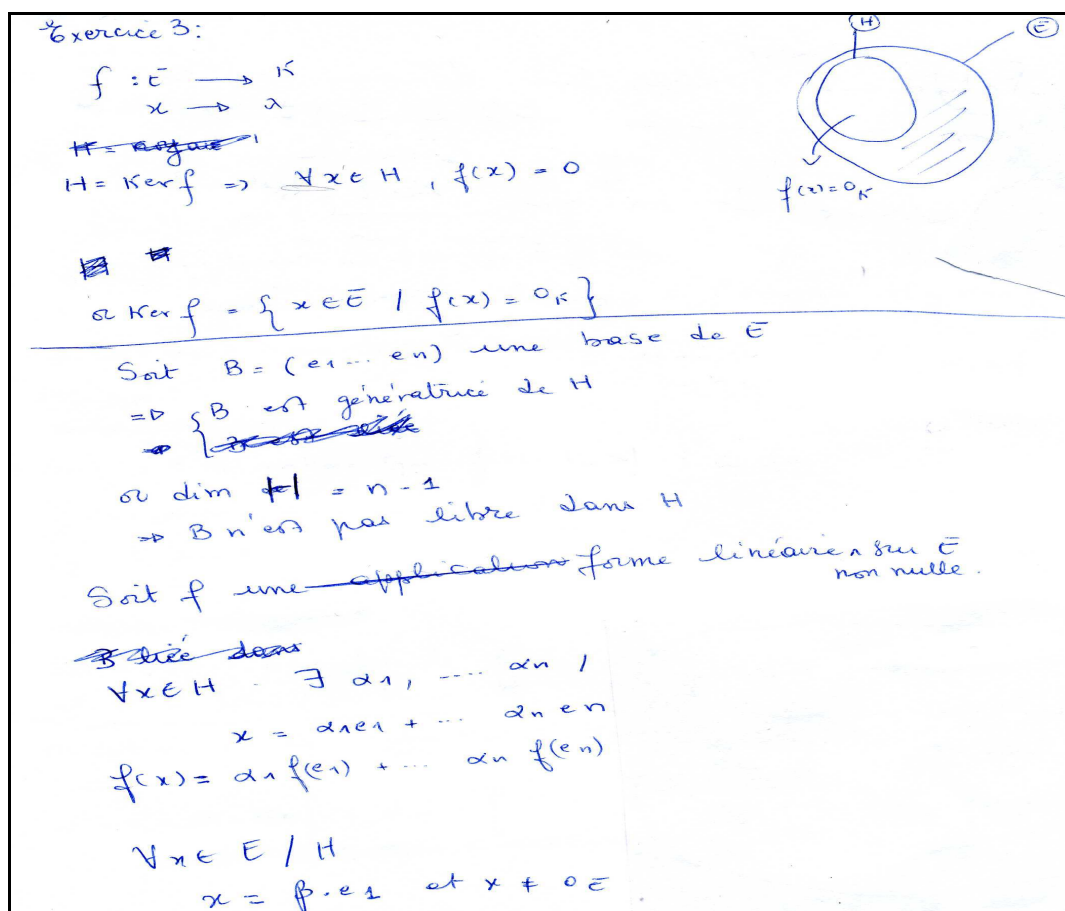 Exercice 3:
H
E
f : E → K
x → λ
H = Ker f => ∀x ∈ H , f(x) = 0
f(x) = 0K
or Ker f = { x ∈ E / f(x) = 0K }
Soit B = (e1 ... en) une base de E
=> { B est génératrice de H
or dim H = n - 1
=> B n'est pas libre dans H
Soit f une application forme linéaire ^ sur E
non nulle.
B liée dans
∀x ∈ H ∃ α1, .... αn /
x = α1e1 + ... αn en
f(x) = α1 f(e1) + ... αn f(en)
∀x ∈ E / H
x = β.e1 et x ≠ 0E